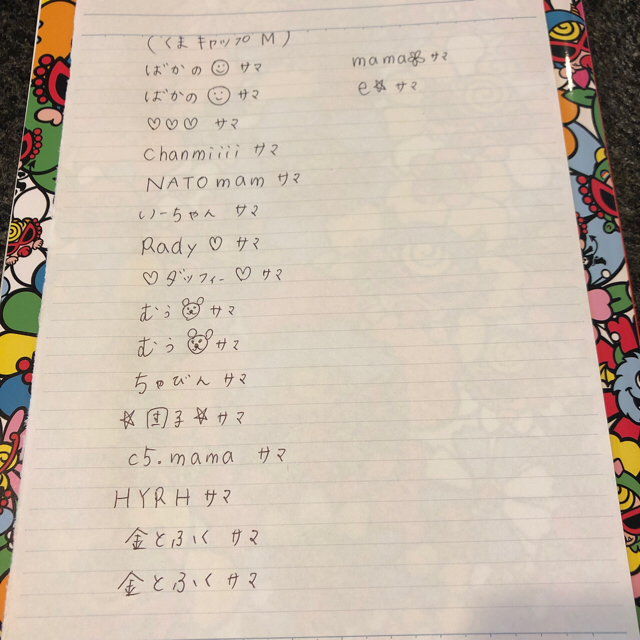 (くまキャップM)
ばかの☺サマ
ばかの☺サマ
♡♡♡ サマ
chanmiiii サマ
NATOmam サマ
いーちゃん サマ
Rady♡サマ
♡ダッフィー♡サマ
むぅ🐻サマ
むぅ🐻サマ
ちゃびん サマ
☆団子☆サマ
c5.mama サマ
HYRH サマ
金とふく サマ
金とふく サマ
mama✿サマ
e☆サマ